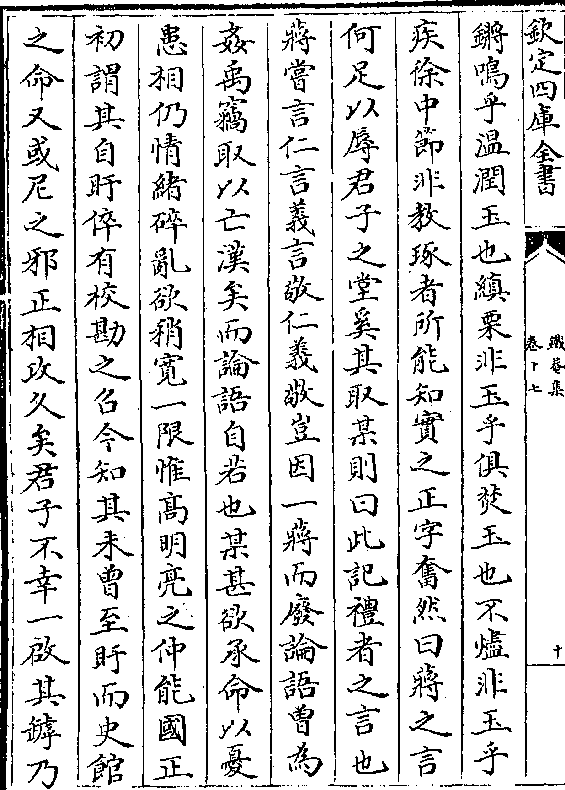 欽定四庫全書
鐵菴集
卷十七
十
鏘鳴乎温潤玉也縝栗非玉乎俱焚玉也不燼非玉乎
疾徐中節非教琢者所能知實之正字奮然曰蔣之言
何足以辱君子之堂奚其取某則曰此記禮者之言也
蔣嘗言仁言義言敬仁義敬豈因一蔣而廢論語曽為
姦禹竊取以亡漢矣而論語自若也某甚欲承命以憂
患相仍情緒碎亂欲稍寛一限惟髙明亮之仲能國正
初謂其自盱倅有校勘之召今知其未曾至盱而史館
之命又或尼之邪正相攻久矣君子不幸一啟其罅乃